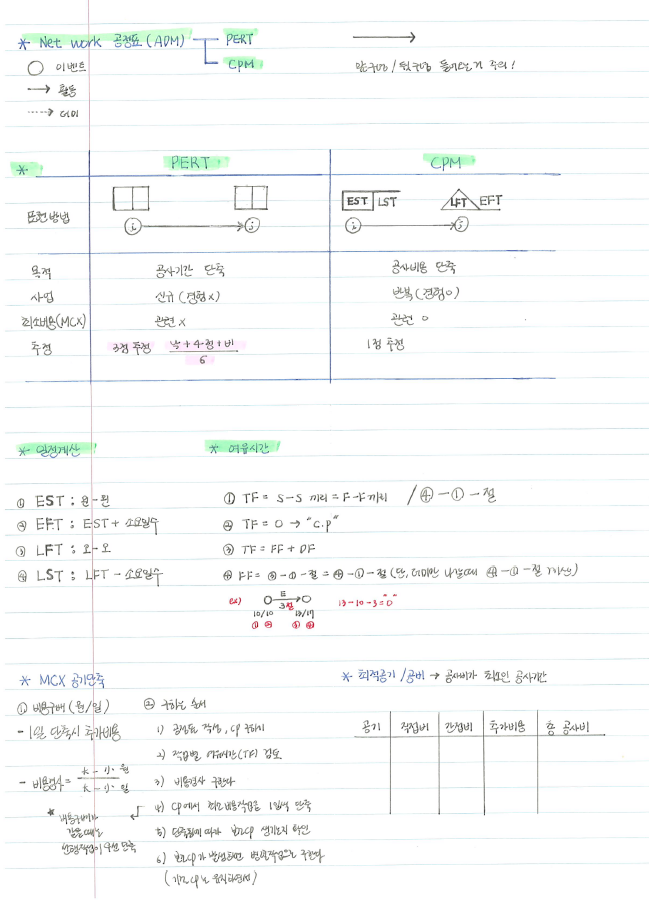 * Net work 공정표 (ADM) PERT
CPM
○ 이벤트
→ 활동
⇢ 더미
앞구멍 / 뒷구멍 들어온거 주의!
* PERT CPM
표현방법 i j EST LST LFT EFT i j
목적 공사기간 단축 공사비용 단축
사업 신규 (경험 x) 반복 (경험 o)
최소비용(MCX) 관련 x 관련 o
추정 3점 추정 낙 + 4·정 + 비 / 6 1점 추정
* 일정계산 * 여유시간
① EST : 왼-왼
② EFT : EST + 소요일수
③ LFT : 오-오
④ LST : LFT - 소요일수
① TF = S-S 끼리 = F-F 끼리 / ④-①-절
② TF = 0 → "C.P"
③ TF = FF + DF
④ FF = ③-①-절 = ④-①-절 (단, 더미만 나갈때 ④-①-절 계산)
ex) E 3일 13-10-3="0"
10/10 13/17
① ② ③ ④
* MCX 공기단축
① 비용구배 (원/일)
- 1일 단축시 추가비용
- 비용경사 = 大 - 小 원 / 大 - 小 일
* 비용구배가
같을때는
선행작업이 우선 단축
② 구하는 순서
1) 공정표 작성, CP 구하기
2) 작업별 여유시간(TF) 검토
3) 비용경사 구한다
4) CP에서 최소비용작업을 1일씩 단축
5) 단축됨에 따라 보조CP 생기는지 확인
6) 보조CP가 발생하면 병행작업으로 구한다
(기존 CP는 유지하면서)
* 최적공기 / 공비 → 공사비가 최소인 공사기간
공기 직접비 간접비 추가비용 총 공사비